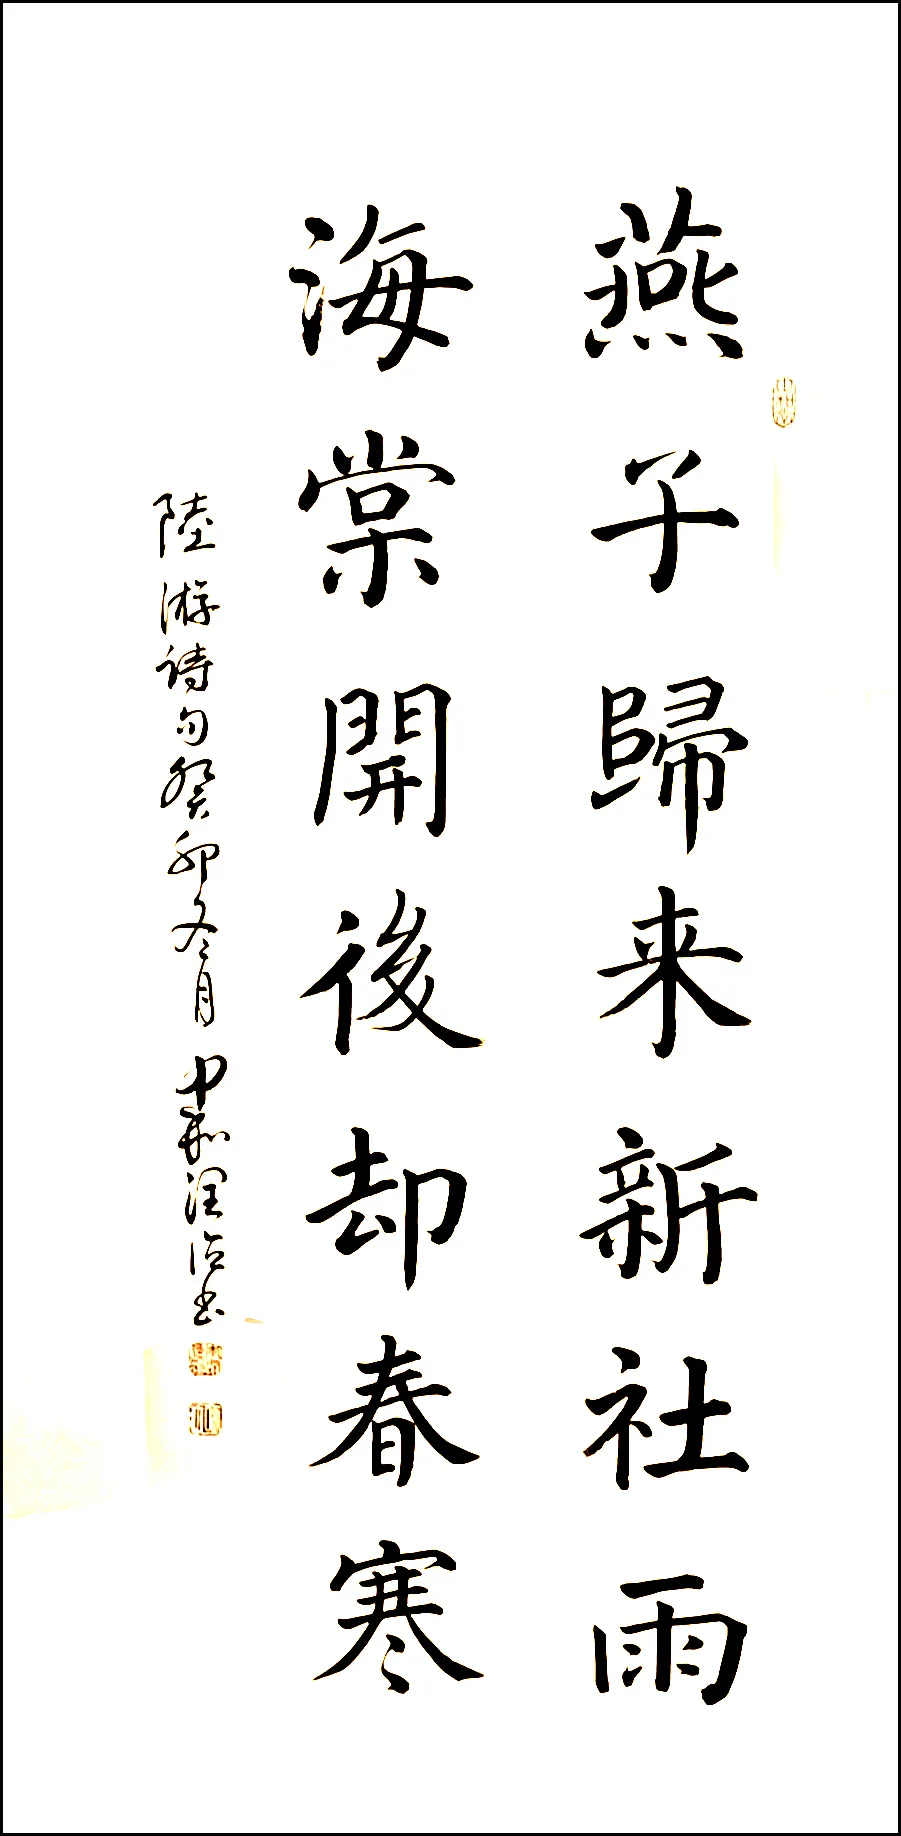 燕子歸来新社雨
海棠開後却春寒
陸游诗句癸卯冬月中和润治书